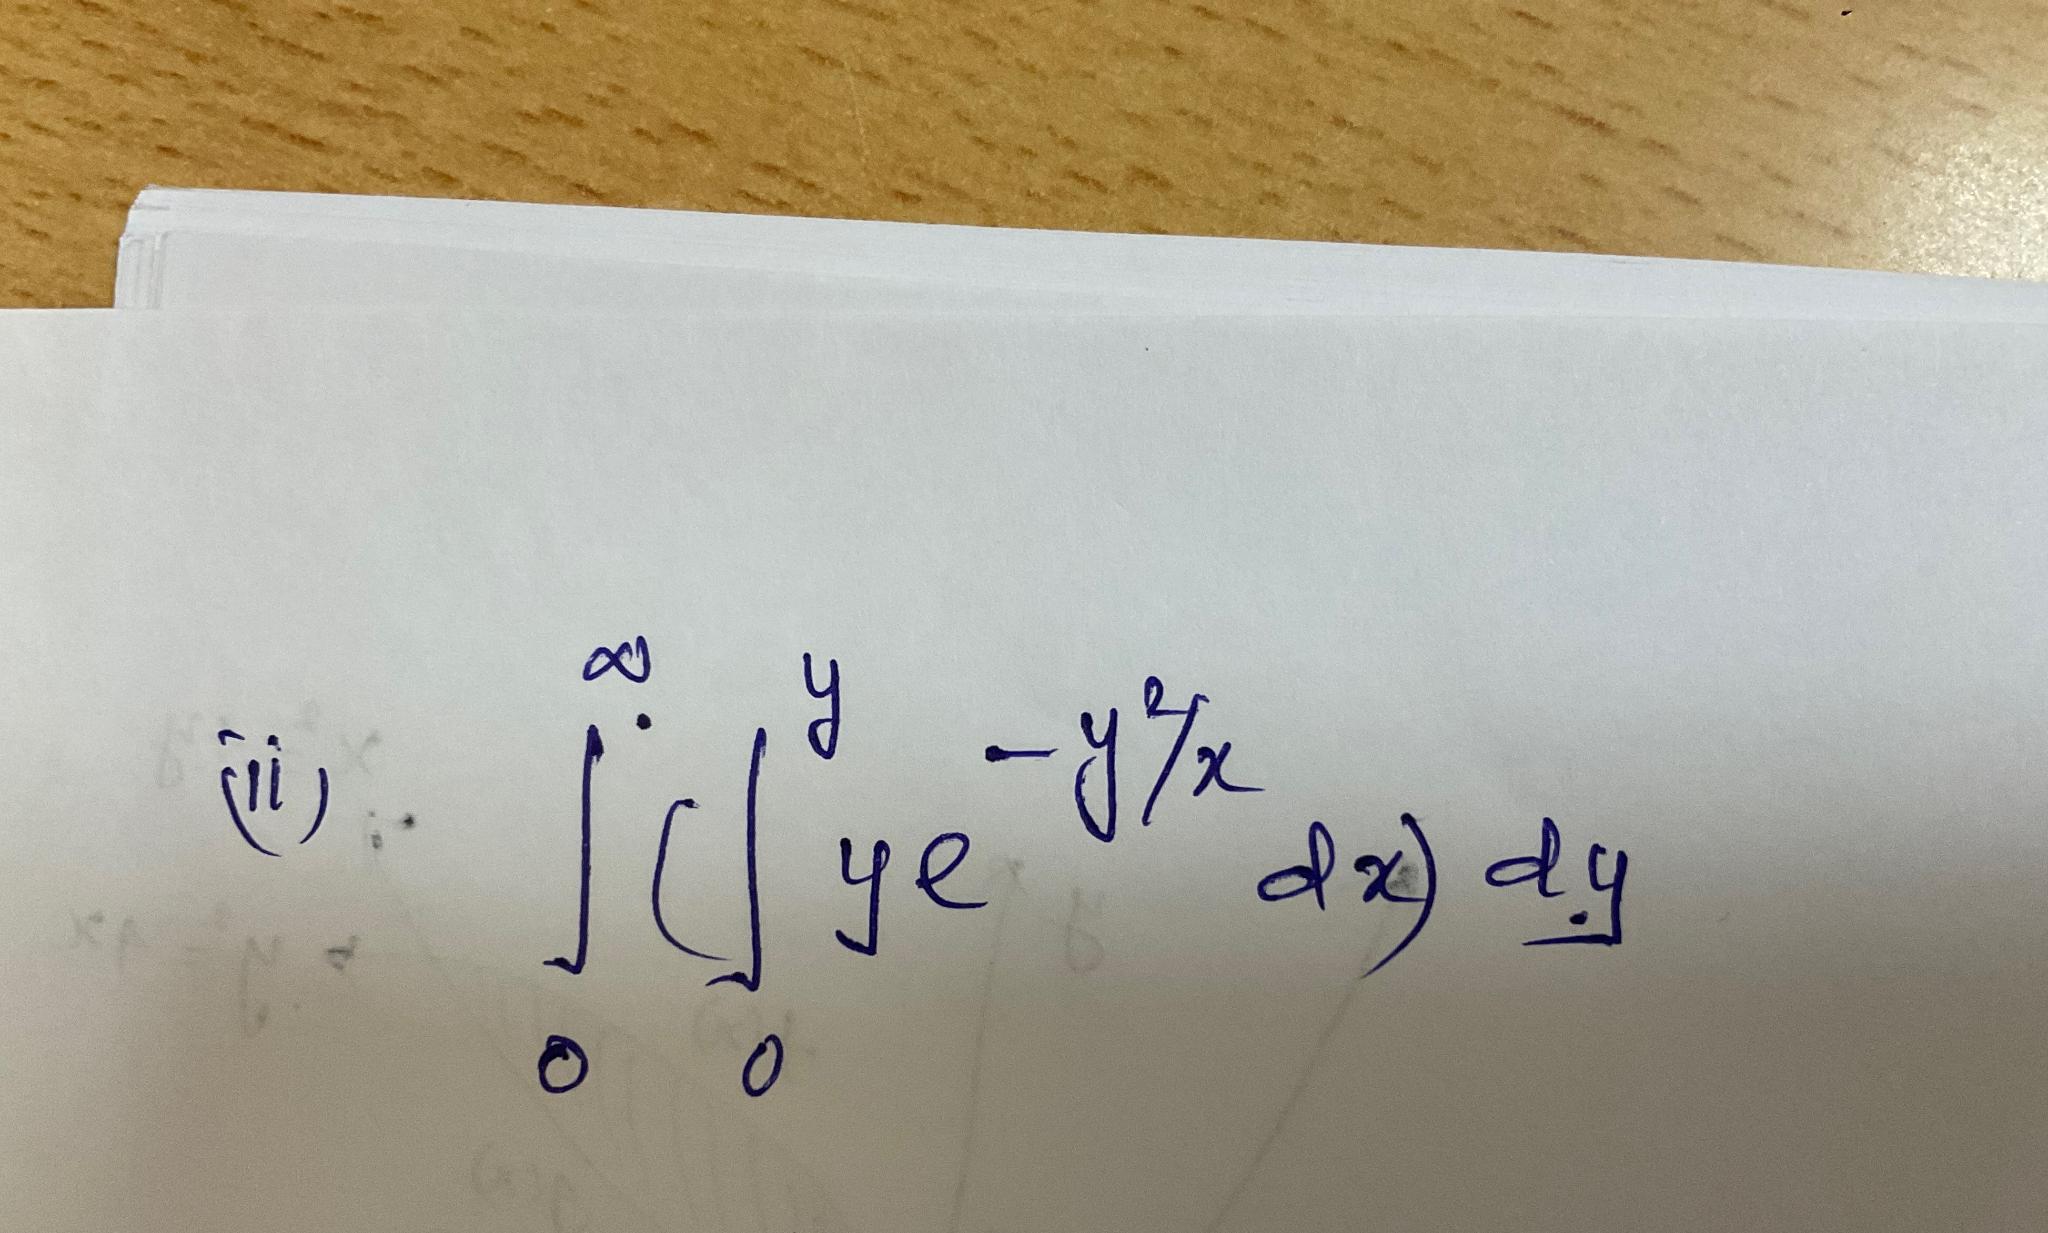 (ii) ∫₀^∞ (∫₀^y y e^{-y²/x} dx) dy